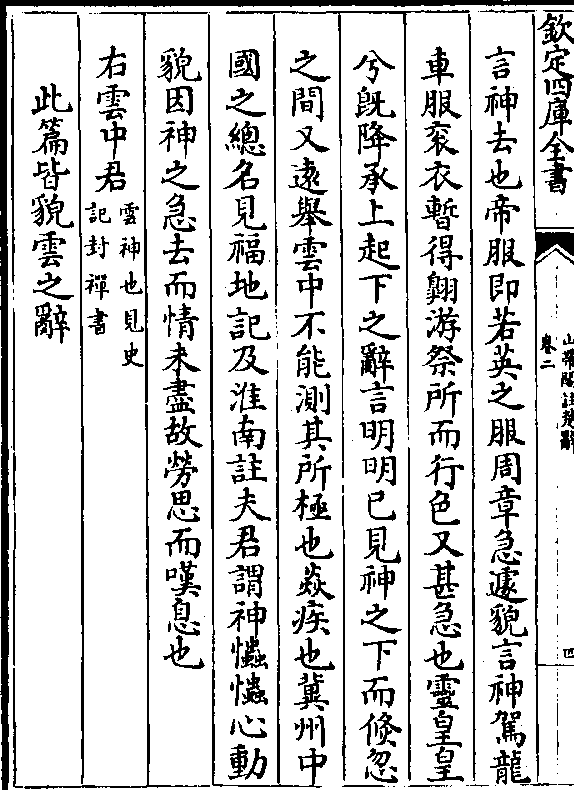 欽定四庫全書
山帶閣註楚辭
卷二
四
言神去也帝服即若英之服周章急遽貌言神駕龍
車服衮衣暫得翺游祭所而行色又甚急也靈皇皇
兮旣降承上起下之辭言明明已見神之下而倏忽
之間又遠舉雲中不能測其所極也猋疾也冀州中
國之總名見福地記及淮南註夫君謂神㦕㦕心動
貌因神之急去而情未盡故勞思而嘆息也
右雲中君
雲神也見史
記封禪書
此篇皆貌雲之辭